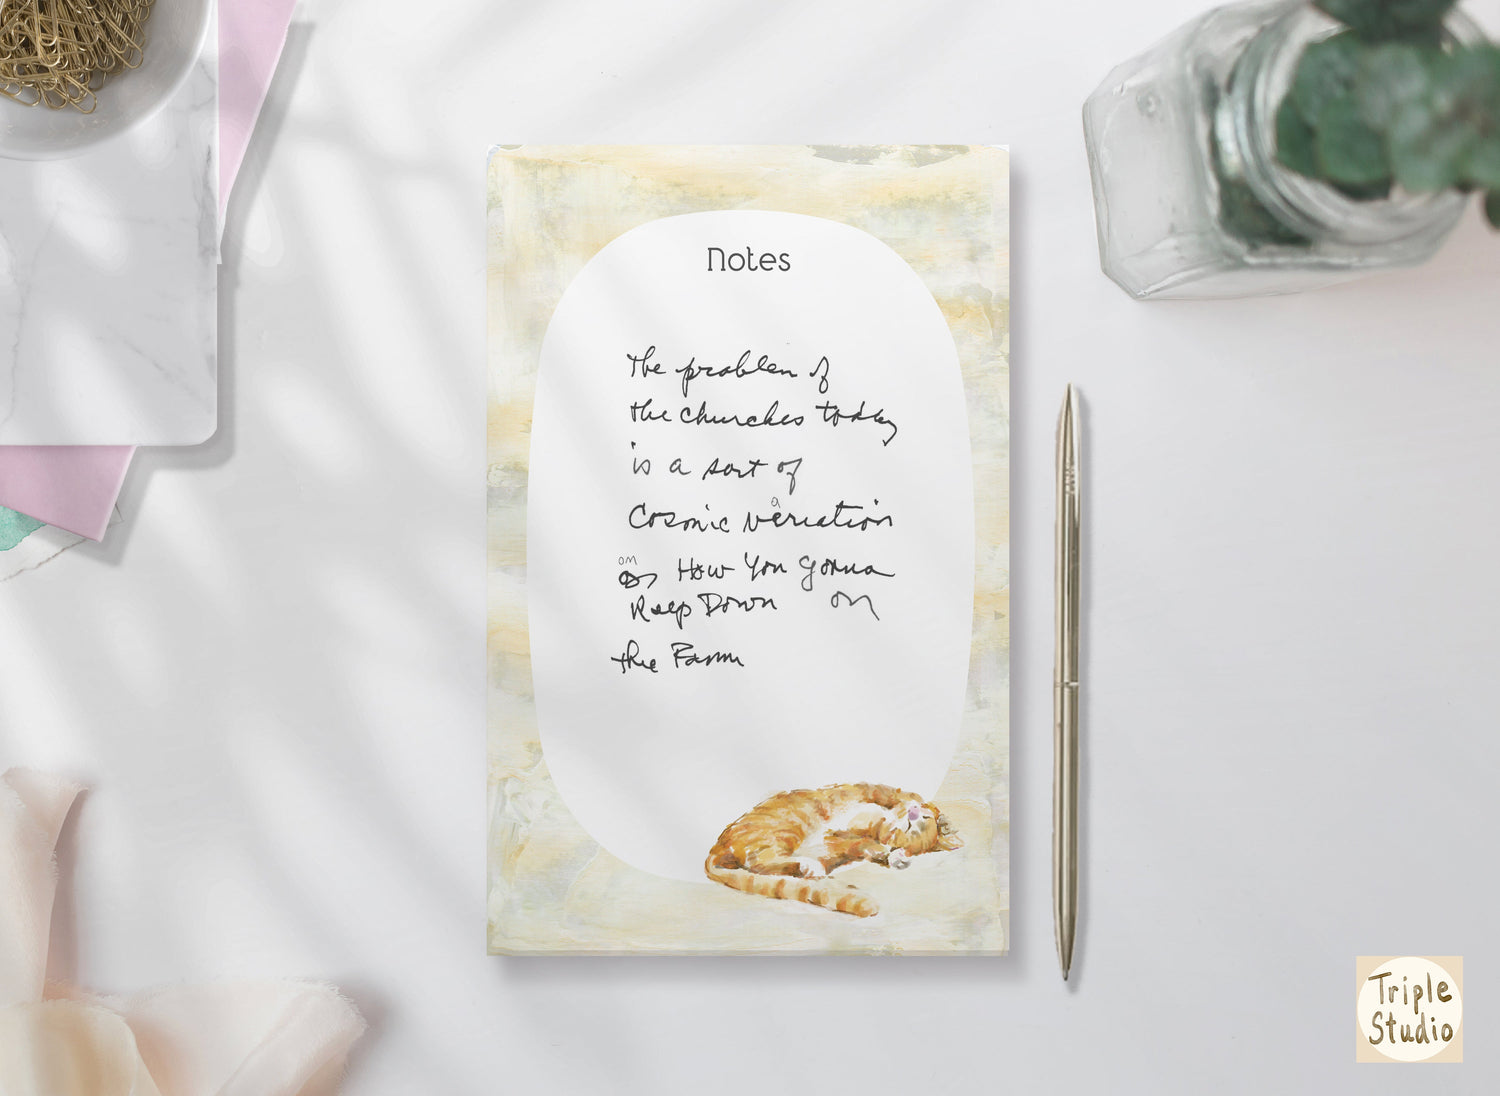 Notes
The problem of
the churches today
is a sort of
Cosmic variation
a
on
on How You Gonna
Keep Down on
the Farm
Triple
Studio